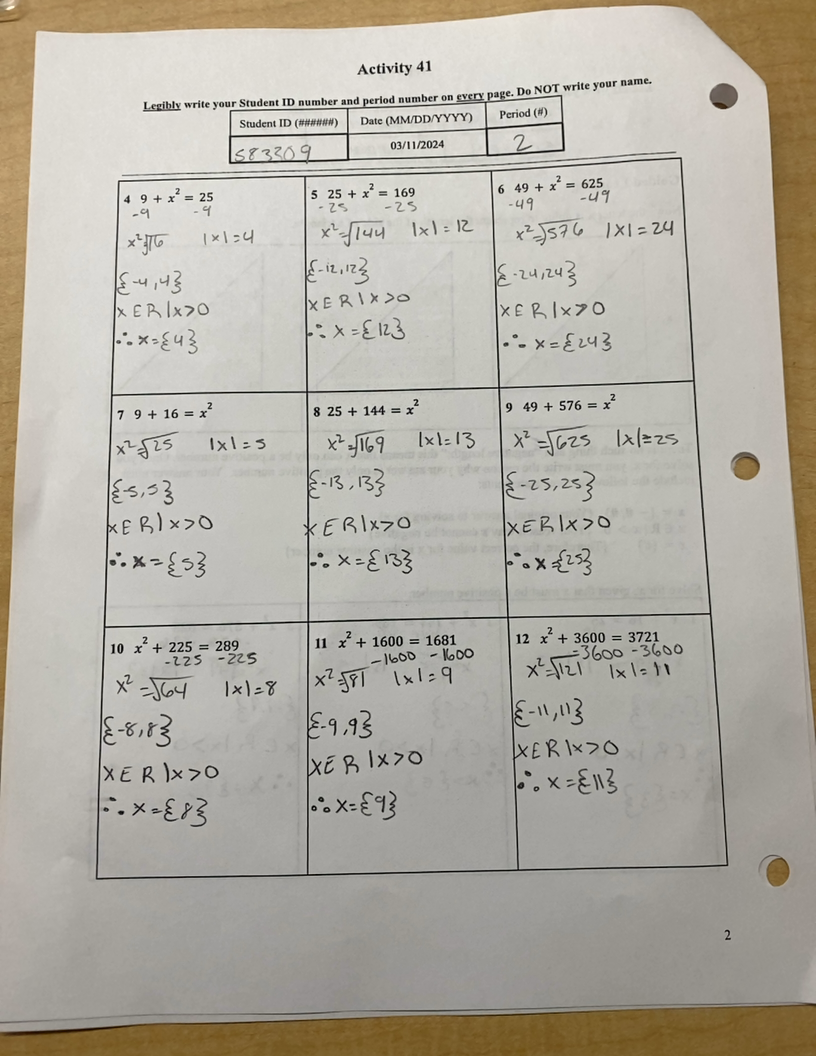 Activity 41
Legibly write your Student ID number and period number on every page. Do NOT write your name.
Student ID (######) Date (MM/DD/YYYY) Period (#)
583209 03/11/2024 2
4 9 + x² = 25
-9 -9
x²=√16 |x|=4
{-4,4}
x∈R|x>0
∴ x={4}
5 25 + x² = 169
-25 -25
x²=√144 |x|=12
{-12,12}
x∈R|x>0
∴ x={12}
6 49 + x² = 625
-49 -49
x²=√576 |x|=24
{-24,24}
x∈R|x>0
∴ x={24}
7 9 + 16 = x²
x²=√25 |x|=5
{-5,5}
x∈R|x>0
∴ x={5}
8 25 + 144 = x²
x²=√169 |x|=13
{-13,13}
x∈R|x>0
∴ x={13}
9 49 + 576 = x²
x²=√625 |x|=25
{-25,25}
x∈R|x>0
∴ x={25}
10 x² + 225 = 289
-225 -225
x²=√64 |x|=8
{-8,8}
x∈R|x>0
∴ x={8}
11 x² + 1600 = 1681
-1600 -1600
x²=√81 |x|=9
{-9,9}
x∈R|x>0
∴ x={9}
12 x² + 3600 = 3721
-3600 -3600
x²=√121 |x|=11
{-11,11}
x∈R|x>0
∴ x={11}
2